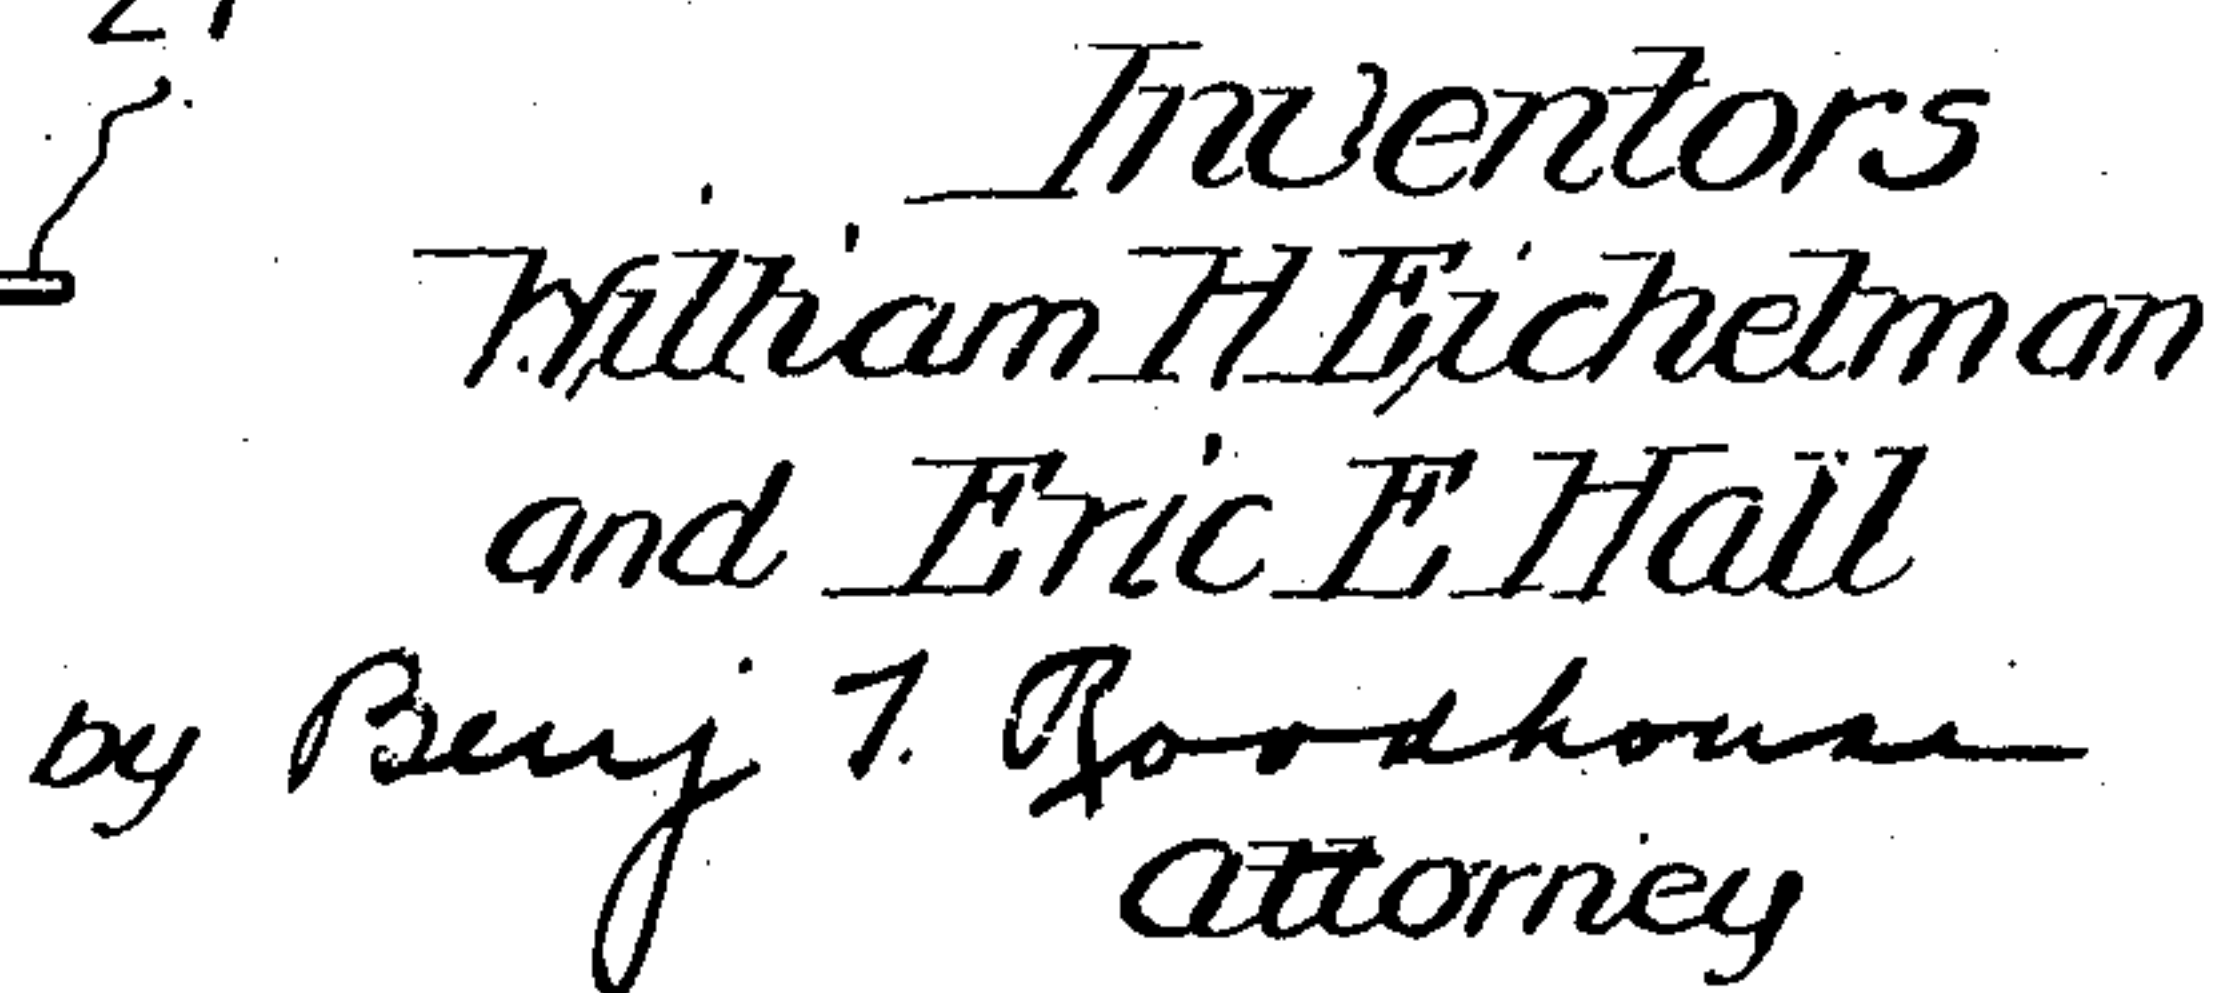 21
Inventors
William H Eichelman
and Eric E Hall
by Benj T. Roodhouse
attorney